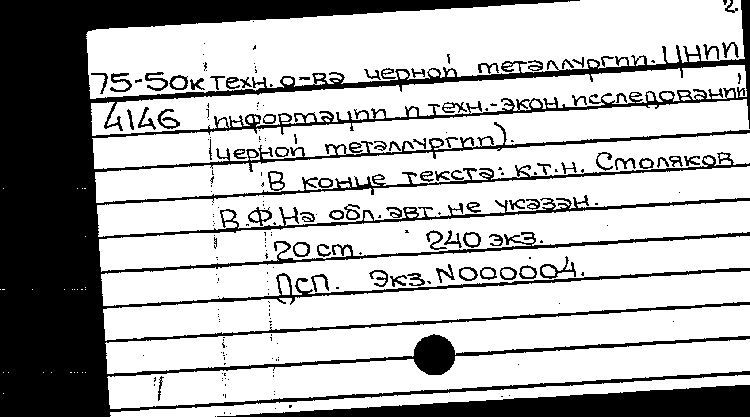 2.
75-50к техн. о-ва черной металлургии. ЦНИИ
4146 информации и техн.-экон. исследований
черной металлургии).
В конце текста: к.т.н. Столяков
В.Ф. На обл. авт. не указан.
20 ст. 240 экз.
Дсп. Экз. N000004.